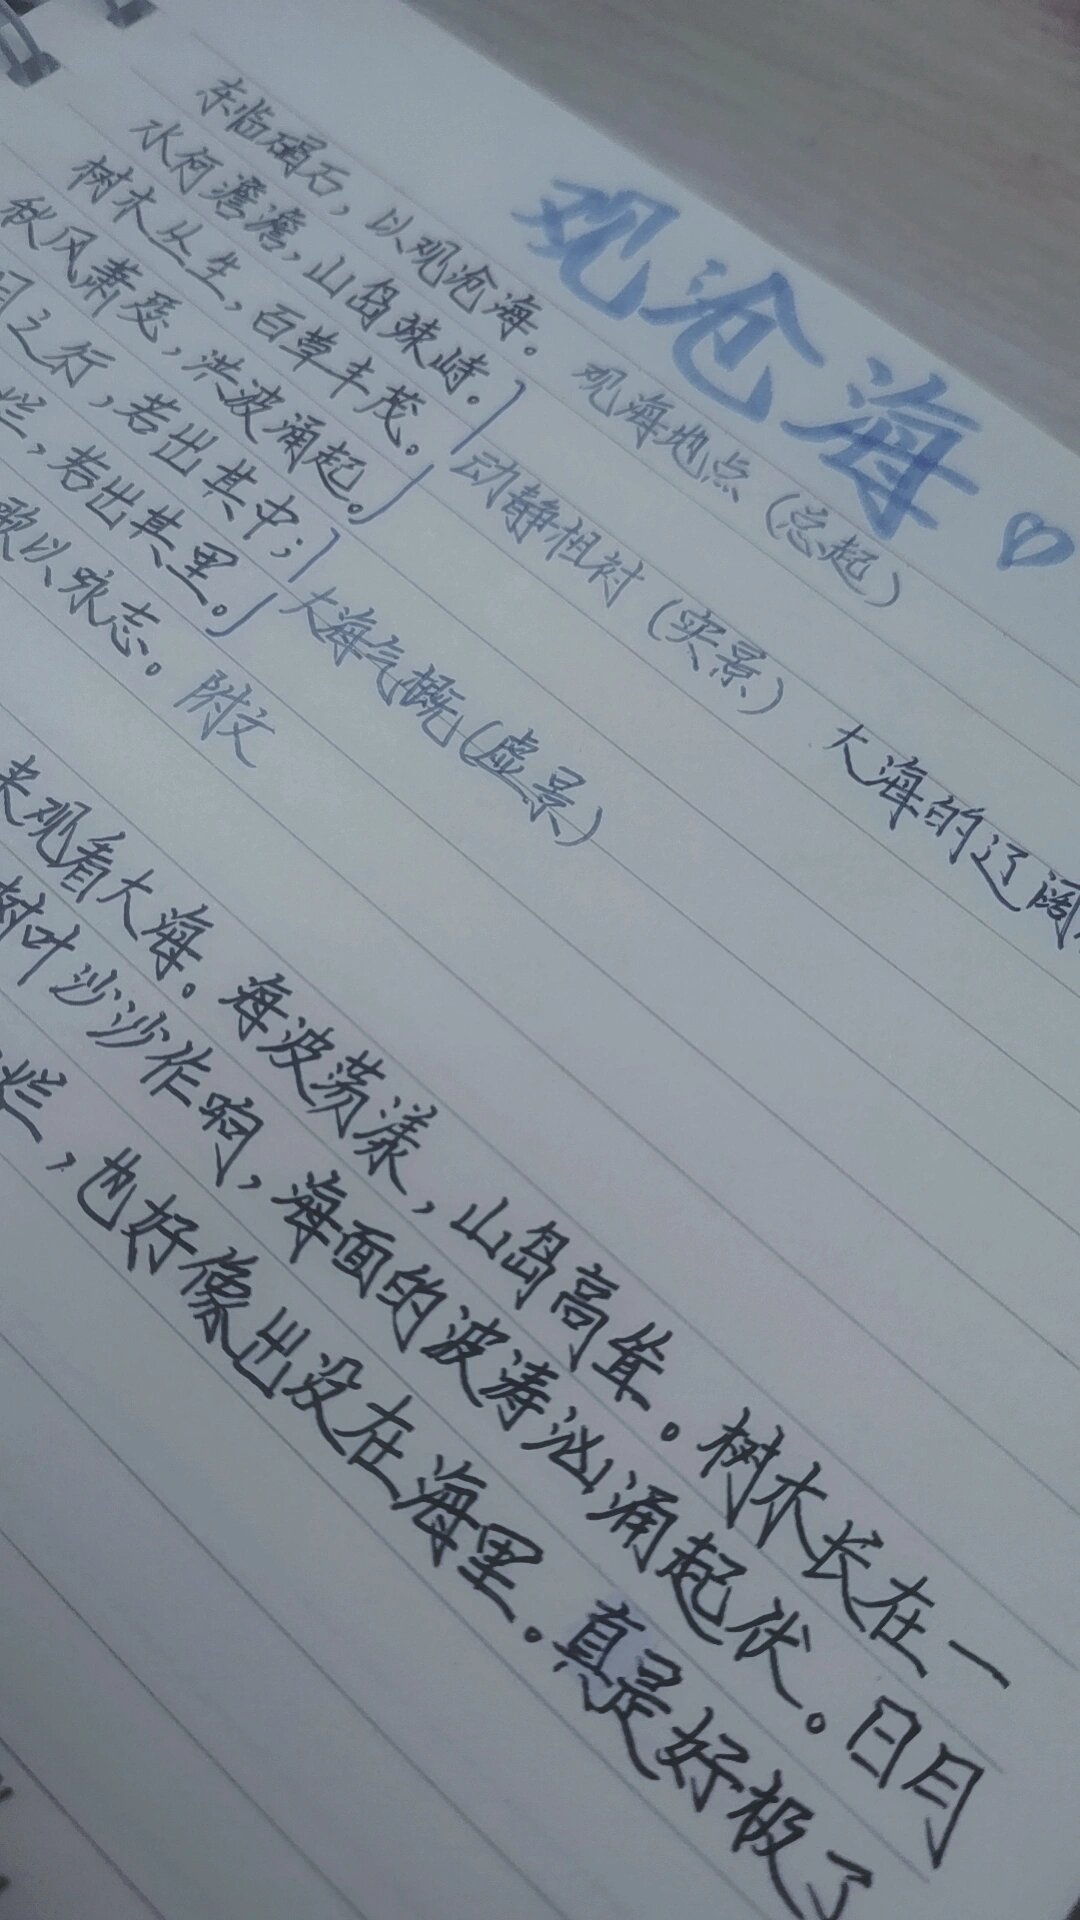 观沧海
东临碣石，以观沧海。 观海地点（总起）
水何澹澹，山岛竦峙。
树木丛生，百草丰茂。 动静相衬（实景） 大海的辽阔
秋风萧瑟，洪波涌起。
月之行，若出其中；
烂，若出其里。 大海气概（虚景）
歌以咏志。 附文
来观看大海。海波荡漾，山岛高耸。树木长在一
树叶沙沙作响，海面的波涛汹涌起伏。日月
烂，也好像出没在海里。真是好极了